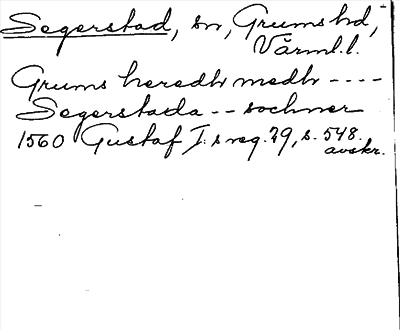 Segerstad, sn, Grums hd,
Värml. l.
Grums heredh medh ----
Segerstada -- sochner
1560 Gustaf I:s reg. 29, s. 548.
avskr.